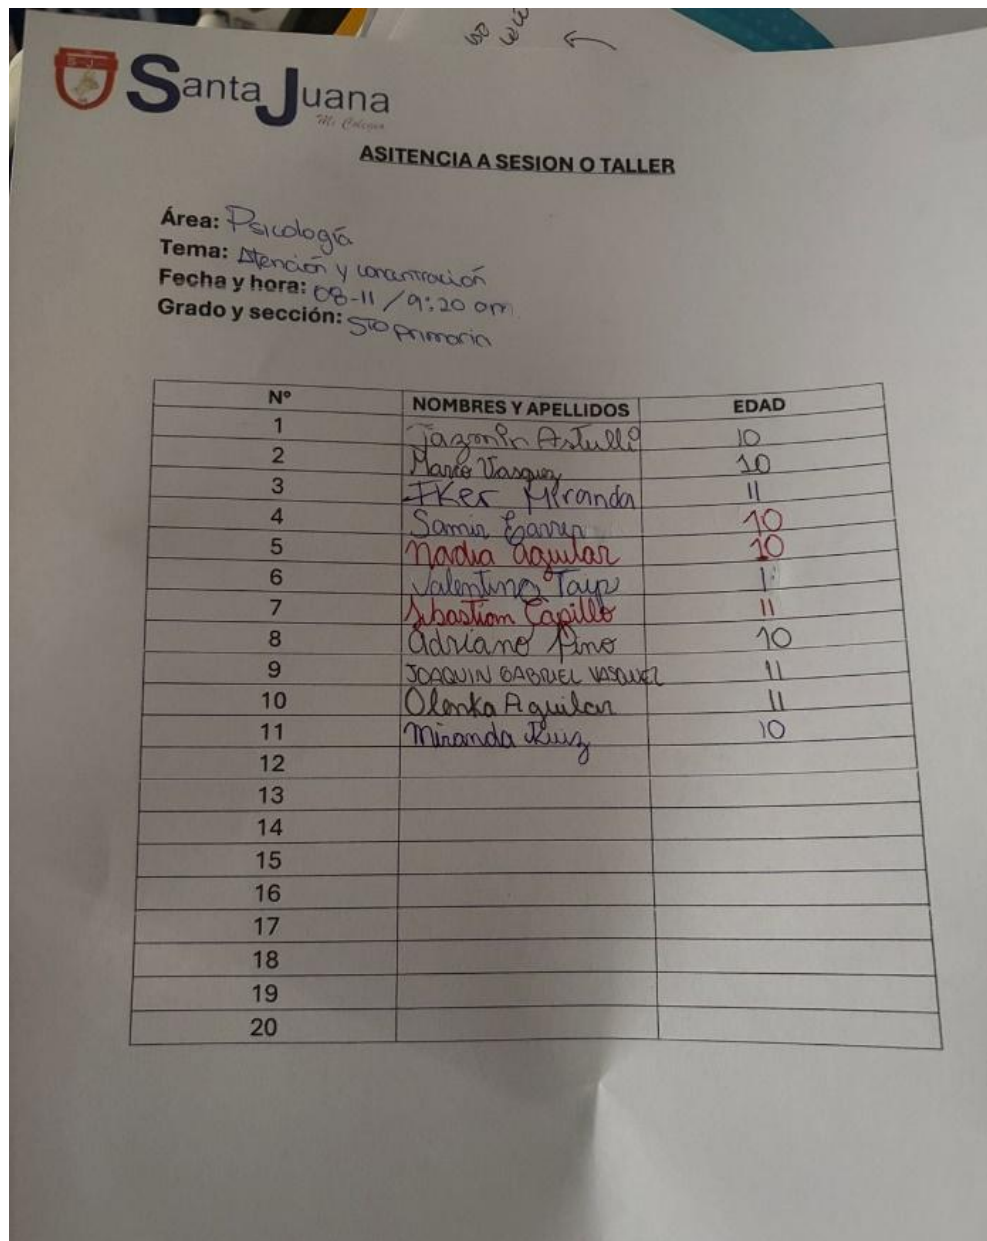 Santa Juana
Mi Colegio
ASITENCIA A SESION O TALLER
Área: Psicología
Tema: Atención y concentración
Fecha y hora: 08-11 / 9:20 am
Grado y sección: 5to primaria
Nº NOMBRES Y APELLIDOS EDAD
1 Jazmin Astulli 10
2 Marco Vasquez 10
3 Iker Miranda 11
4 Samir 10
5 nadia aguilar 10
6 Valentino
7 Sebastiam Capillo 11
8 adriano Pino 10
9 JOAQUIN GABRIEL VASQUEZ 11
10 Olenka Aguilar 11
11 Miranda Ruiz 10
12
13
14
15
16
17
18
19
20